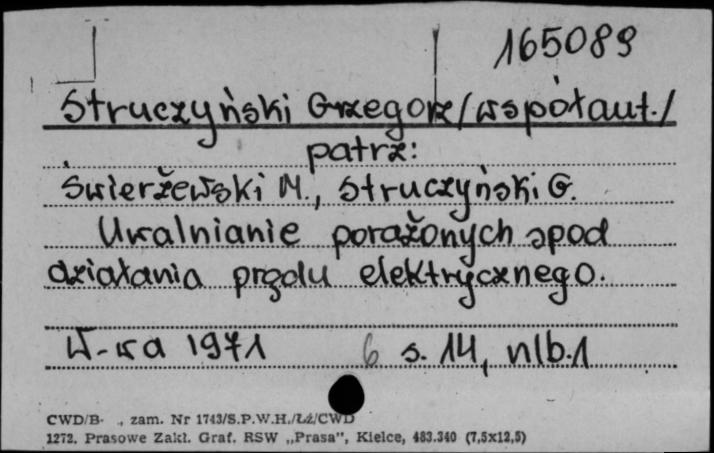 165089
Struczyński Grzegorz /współaut./
patrz:
Świerżewski M., Struczyński G.
Uwalnianie porażonych spod
działania prądu elektrycznego.
W-wa 1971 6 s. 14, nlb.1
CWD/B- ., zam. Nr 1743/S.P.W.H./Łź/CWD
1272. Prasowe Zakł. Graf. RSW „Prasa", Kielce, 483.340 (7,5x12,5)